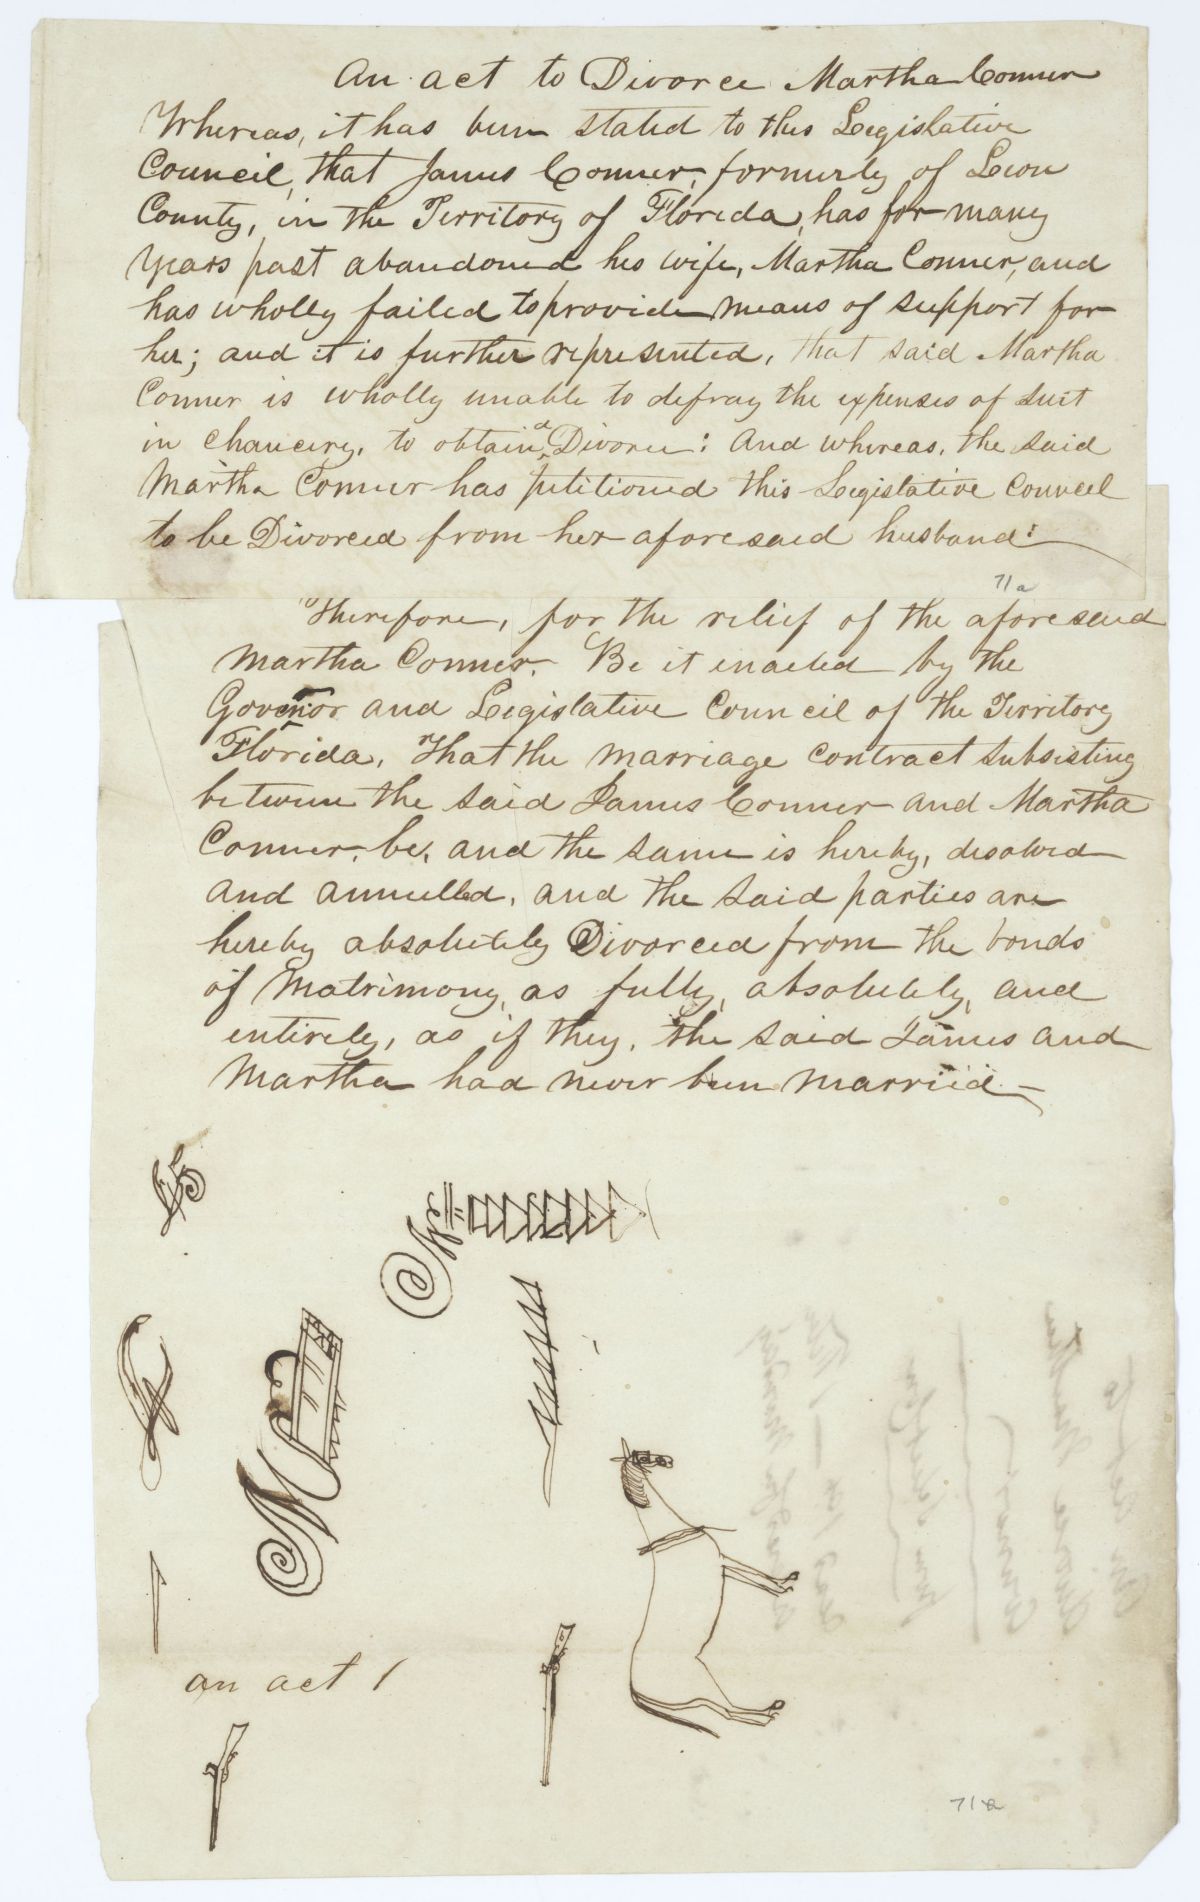 An act to Divorce Martha Conner
Whereas, it has been stated to this Legislative
Council, that James Conner, formerly of Leon
County, in the Territory of Florida, has for many
years past abandoned his wife, Martha Conner, and
has wholly failed to provide means of support for
her; and it is further represented, that said Martha
Conner is wholly unable to defray the expenses of suit
in Chancery, to obtain a Divorce: And whereas, the said
Martha Conner has petitioned this Legislative Council
to be Divorced from her aforesaid husband:
71a
Therefore, for the relief of the aforesaid
Martha Conner. Be it enacted by the
Governor and Legislative Council of the Territory
Florida, That the marriage contract subsisting
between the said James Conner and Martha
Conner, be, and the same is hereby, desolved
and annulled, and the said parties are
hereby absolutely Divorced from the bonds
of Matrimony, as fully, absolutely, and
entirely, as if they, the said James and
Martha had never been married
an act
71a